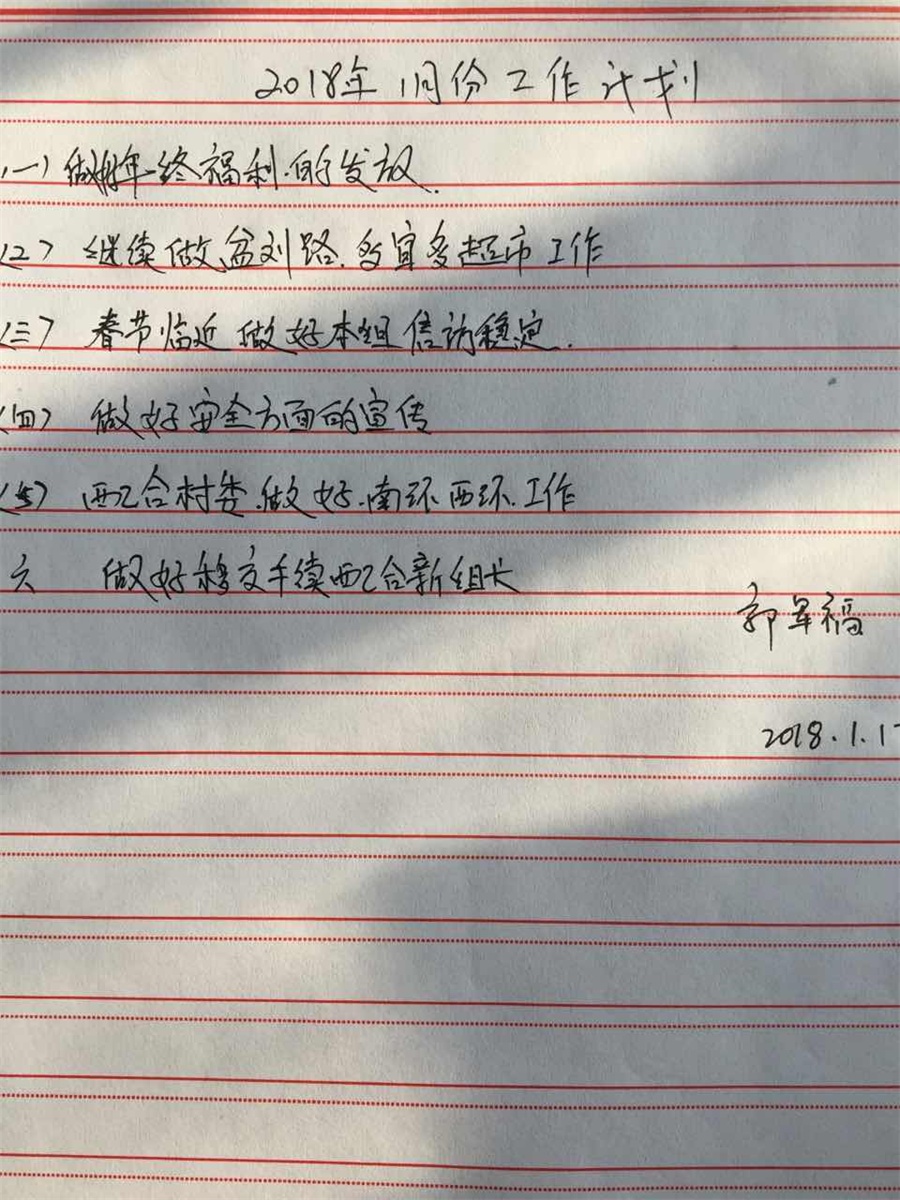 2018年1月份工作计划
(一) 做好年终福利的发放.
(2) 继续做盆刘路.多宜多超市工作
(三) 春节临近做好本组信访稳定.
(四) 做好安全方面的宣传
(5) 配合村委.做好.南环西环.工作
六 做好移交手续配合新组长
郭军福
2018.1.17